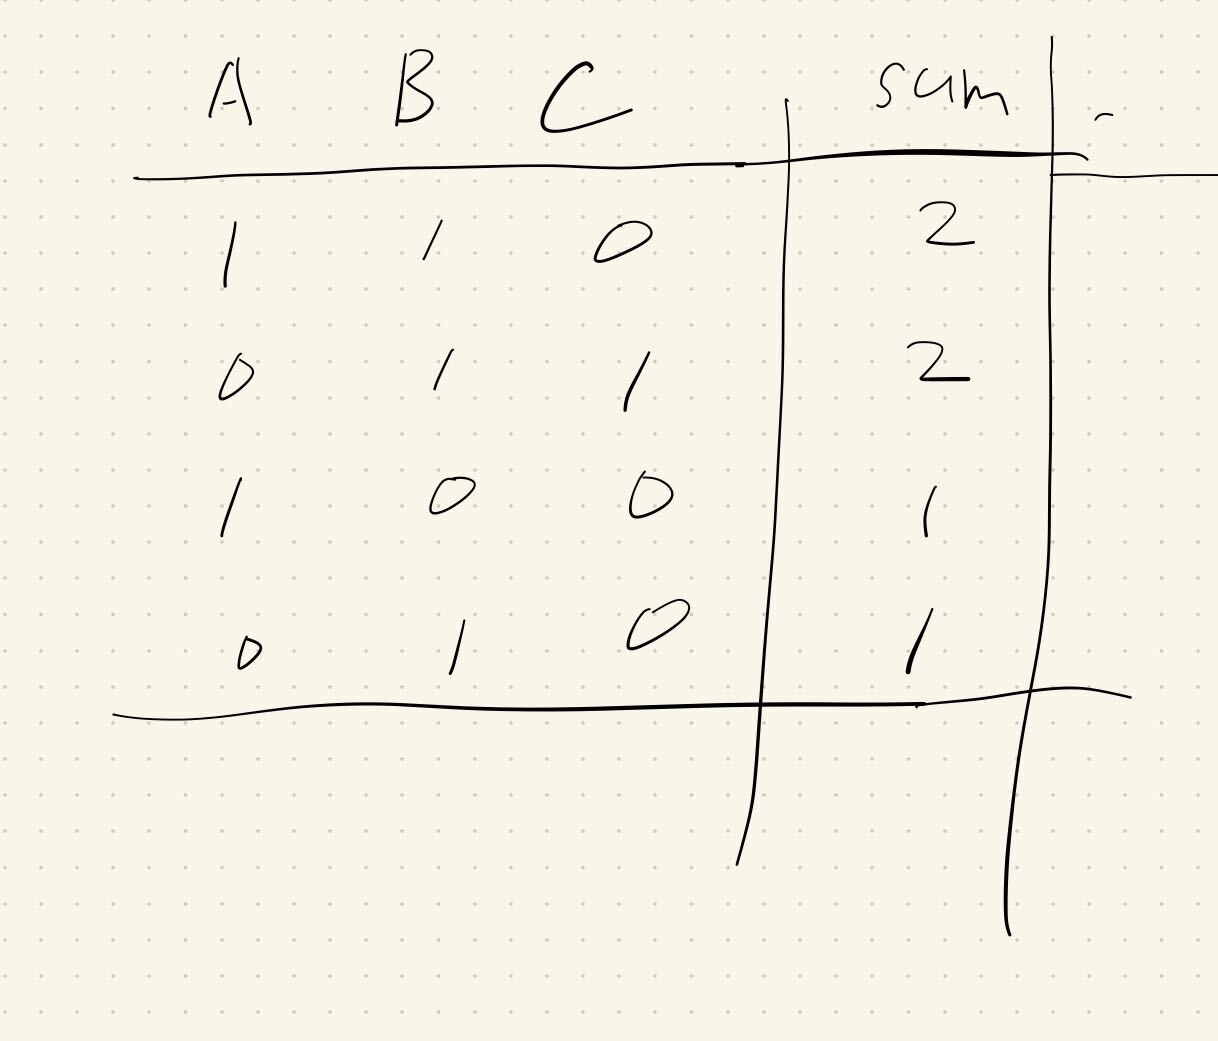 A B C sum
1 1 0 2
0 1 1 2
1 0 0 1
0 1 0 1